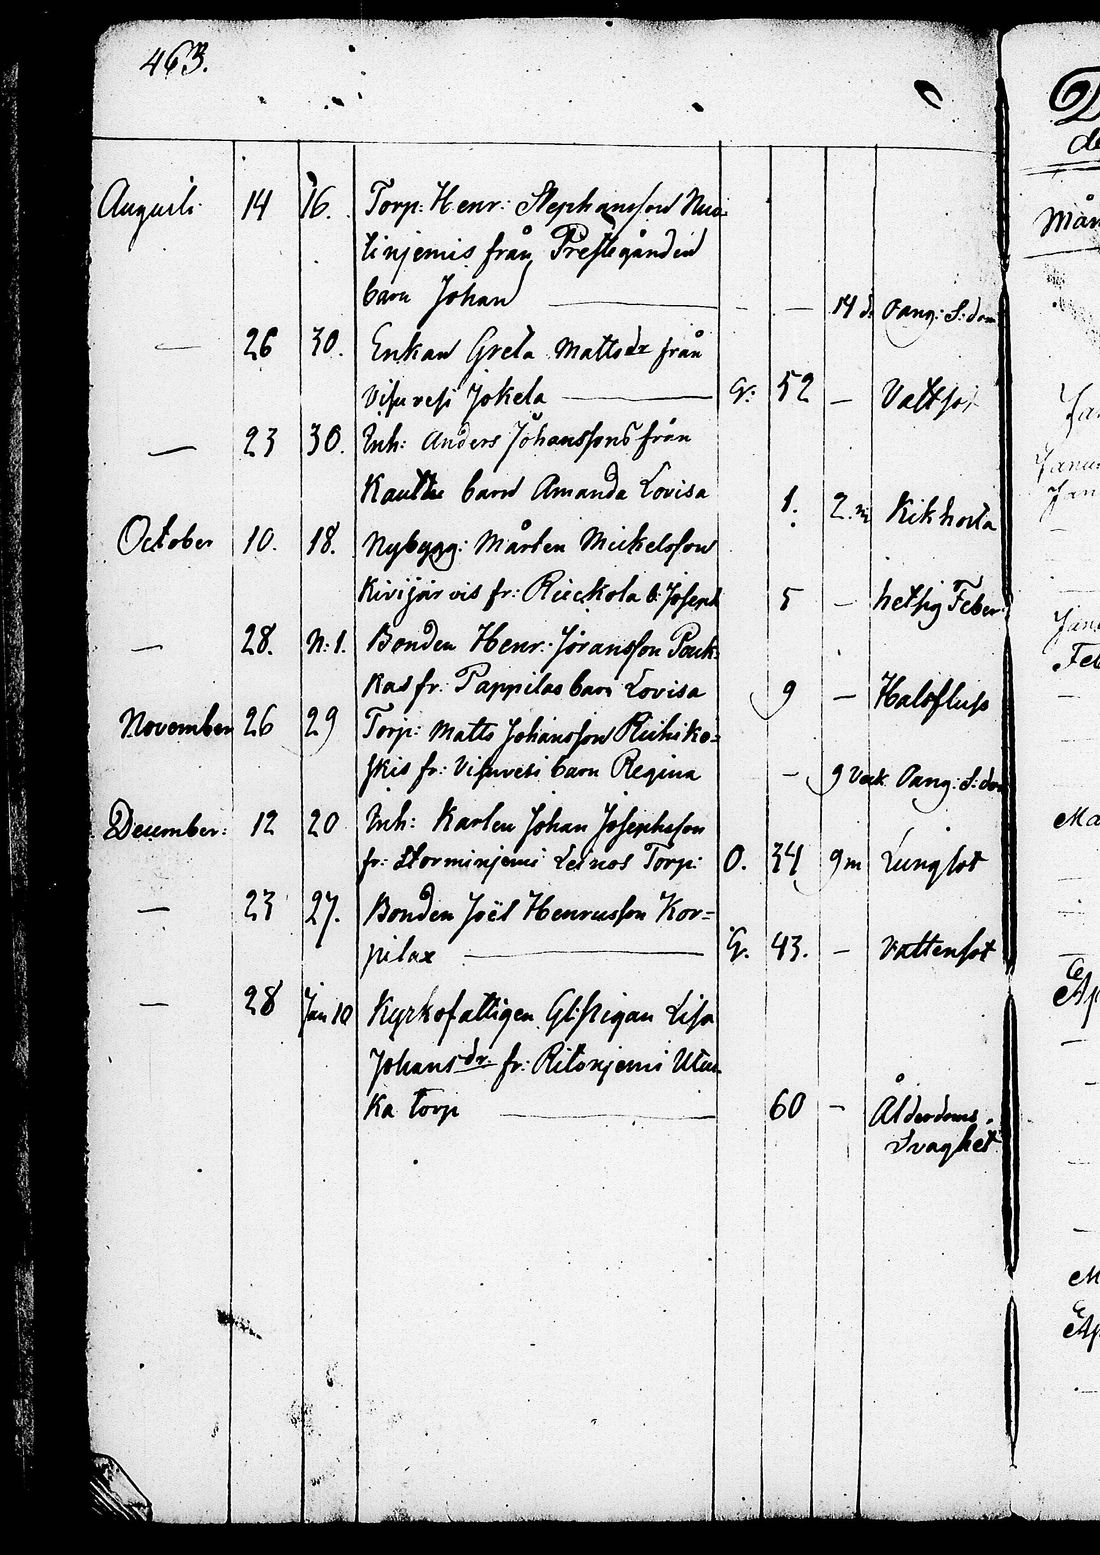 463.
Augusti 14 16. Torp: Henr: Stephansson
från Prestegården
barn Johan — — 14 d. Oang: S:dom
— 26 30. Enkan Greta Mattsdr från
Visuvesi Jokela — G: 52 — Vattsot
— 23 30. Inh: Anders Johanssons från
Kautto barn Amanda Lovisa 1. 2.m Kikhosta
October 10. 18. Nybygg: Mårten Mickelsson
Kivijärvis fr: Ruokola b. Joseph 5 — hetsig Feber
— 28. N. 1. Bonden Henr: Jöransson
kas fr: Pappilas barn Lovisa 9 — Halsfluss
November 26 29 Torp: Matts Johansson Riihiko=
skis fr: Visuvesi barn Regina — 9 Veck Oang: S:dom
December: 12 20 Inh: Karlen Johan Josephsson
fr: Storminjemi Leinos Torp: O. 34 9m Lungsot
— 23 27. Bonden Joël Henricsson Kor=
pilax — G. 43. — Vattensot
— 28 Jan 10 Kyrkofattigen Lisa
Johansdr: fr: Ritoniemi
ka torp — 60 — Ålderdoms
Svaghet
D
de
Mån
Jan
Janu
Jan
Janu
Feb
Ma
Ap
M
Ap